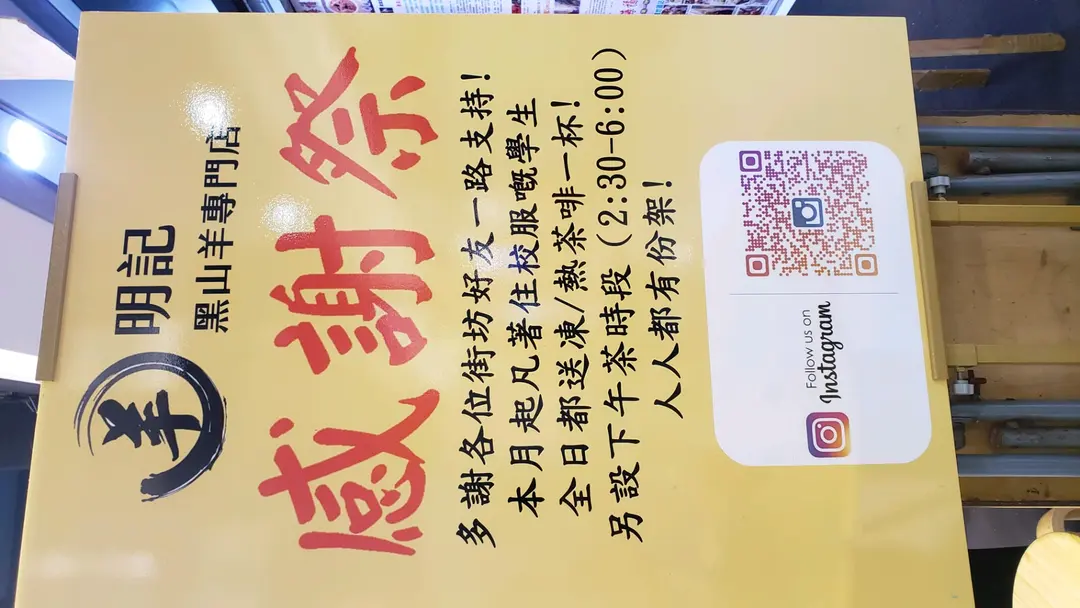 羊
明記
黑山羊專門店
感謝祭
多謝各位街坊好友一路支持！
本月起凡著住校服嘅學生
全日都送凍/熱茶啡一杯！
另設下午茶時段（2:30-6:00）
人人都有份架！
Follow us on
Instagram